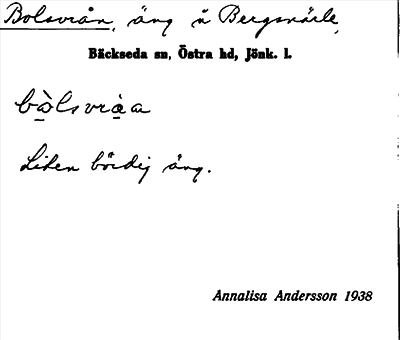 Bolsvrån, äng å Bergsnärle,
Bäckseda sn, Östra hd, Jönk. l.
bòlsvràa
Liten bördig äng.
Annalisa Andersson 1938